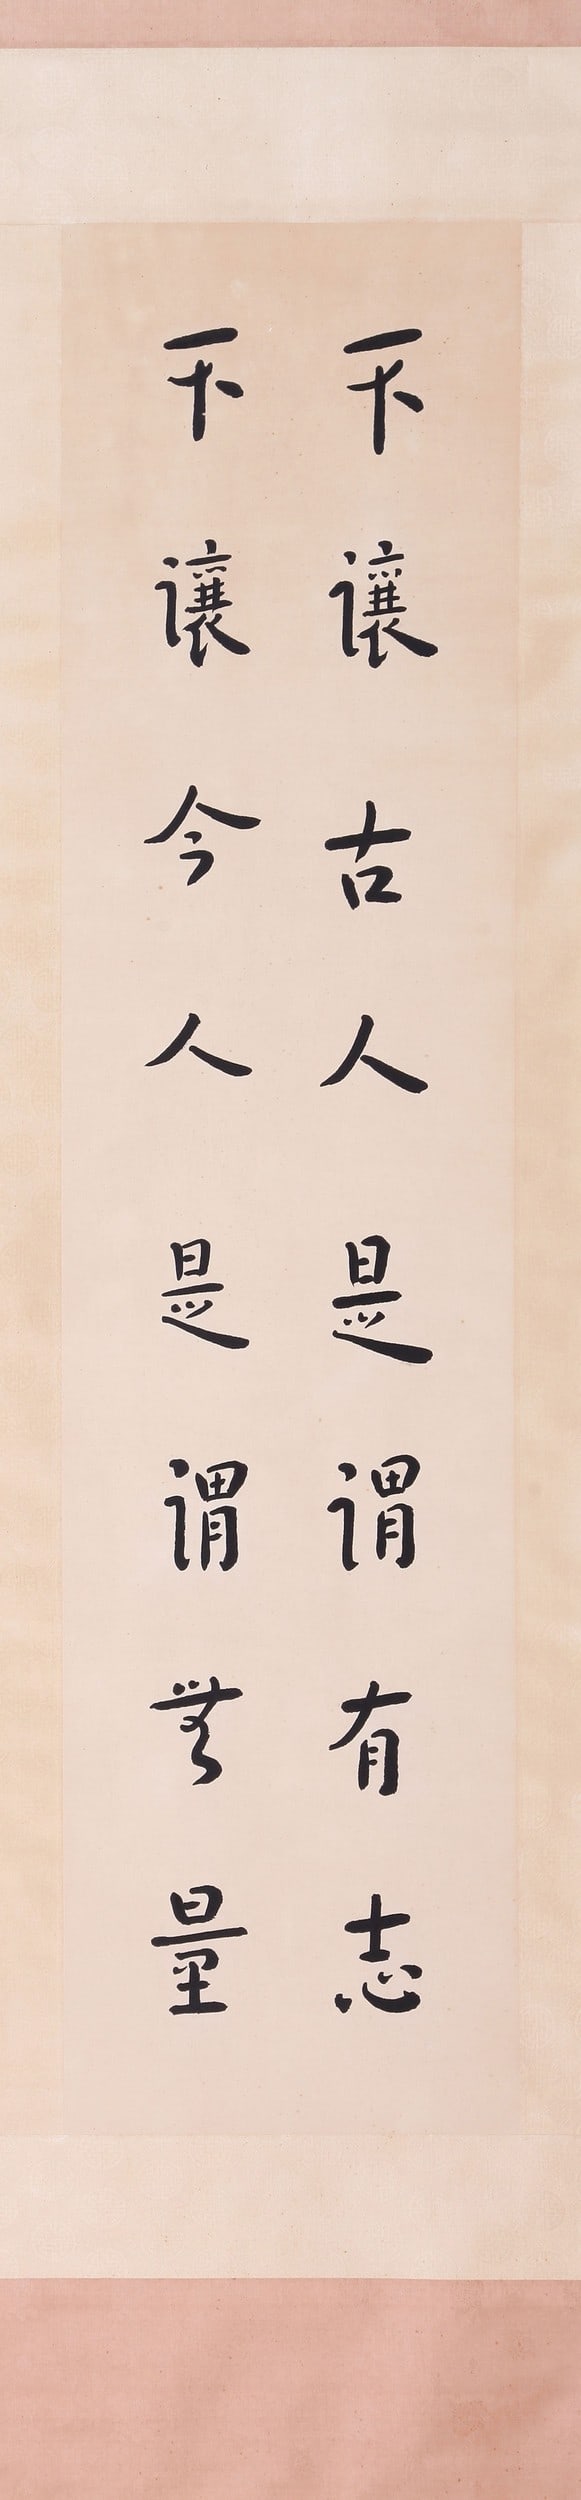 不讓古人是谓有志
不讓今人是谓無量